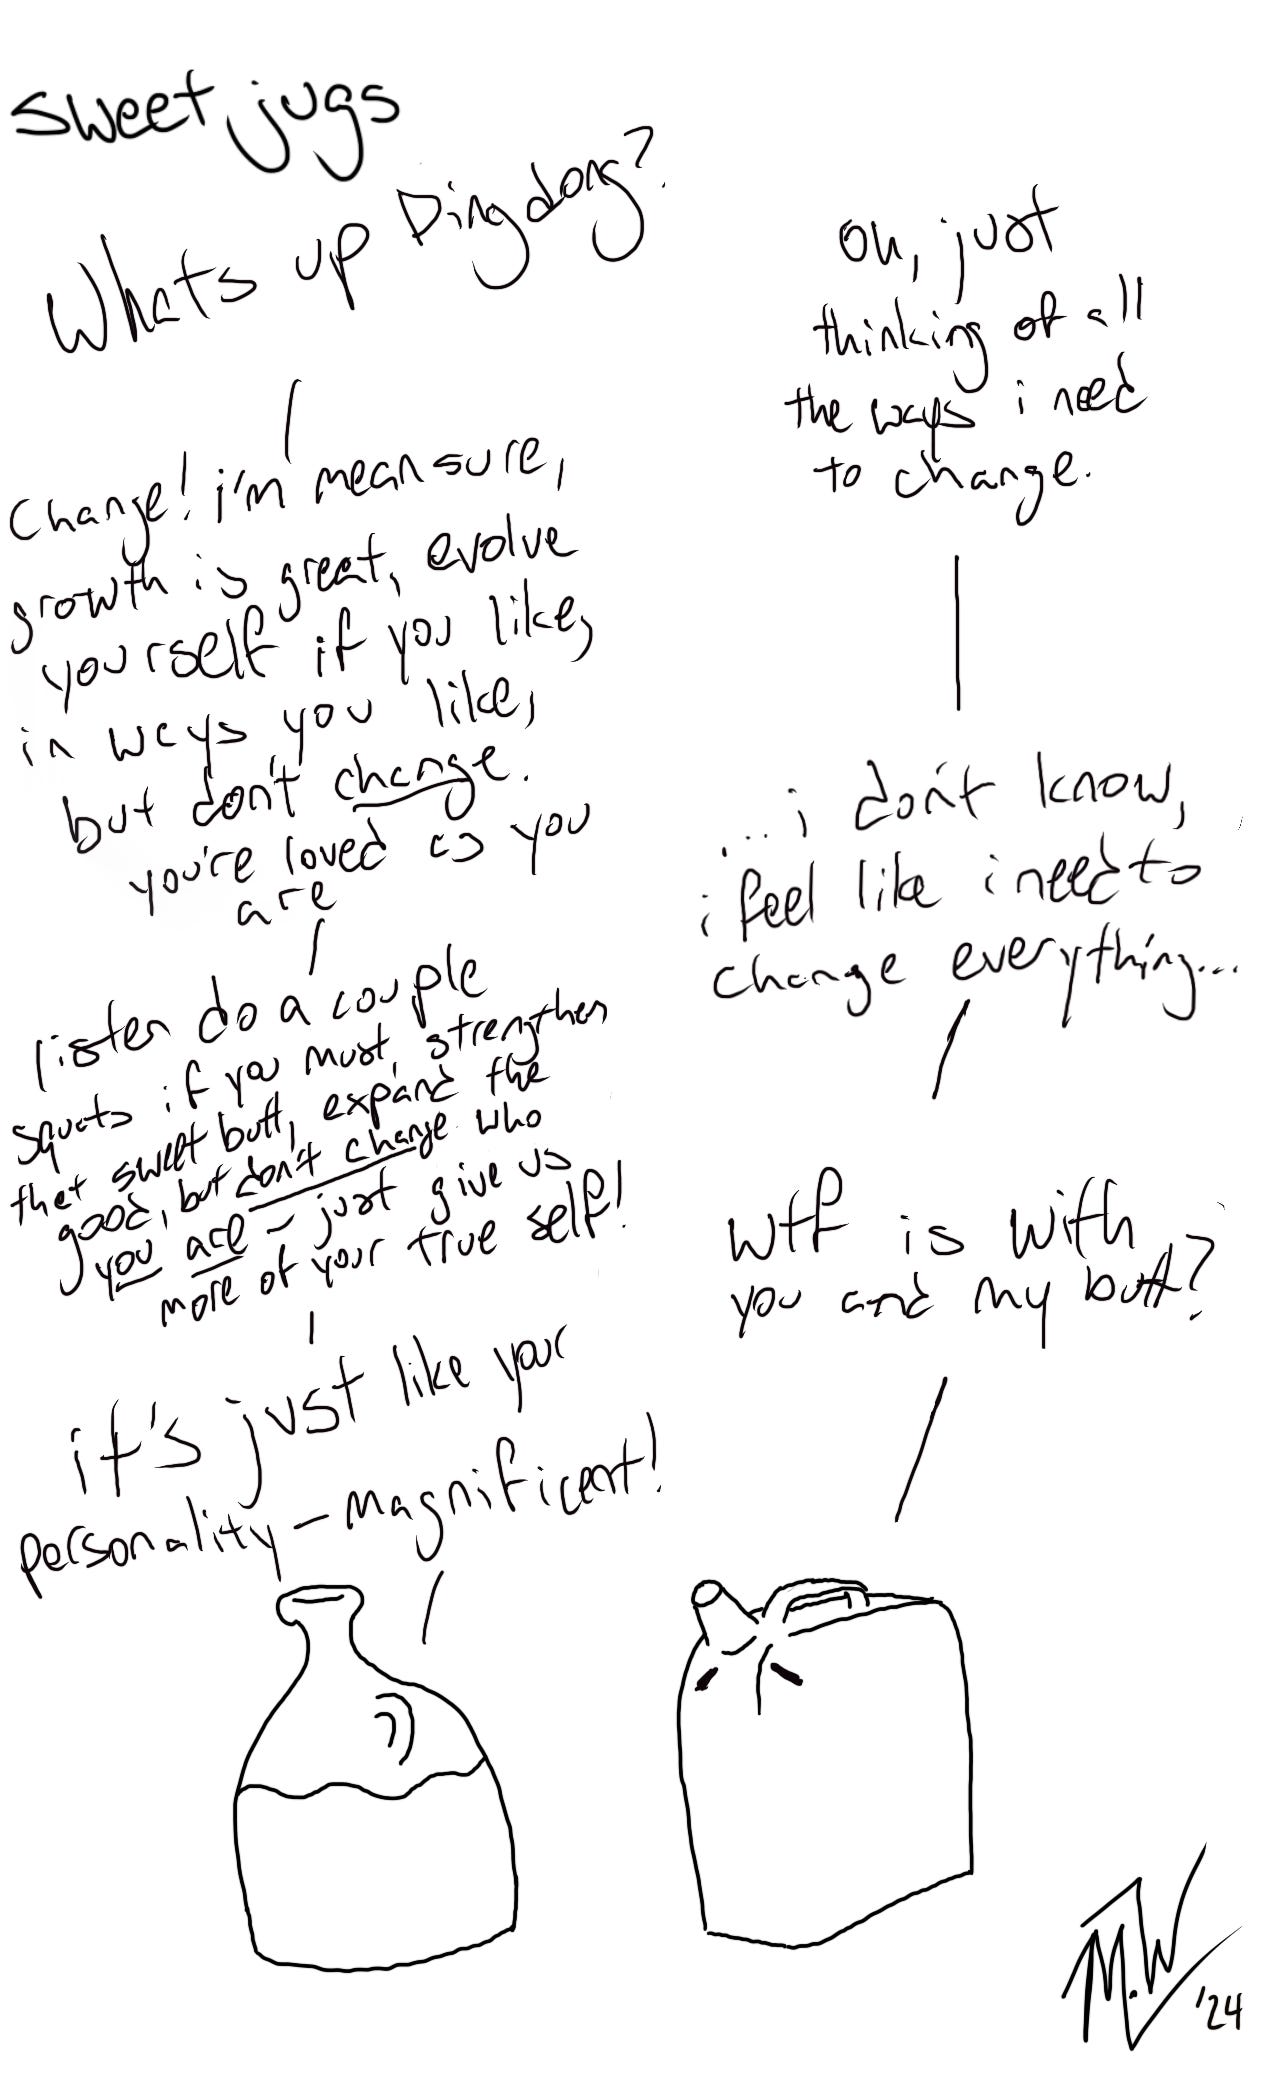 sweet jugs
Whats up Dingdong?
Oh, just
thinking of all
the ways i need
to change.
Change! i'm mean sure,
growth is great, evolve
yourself if you like,
in ways you like,
but don't change.
you're loved as you
are
...i don't know,
i feel like i need to
change everything...
listen do a couple
squats if you must, strengthen
that sweet butt, expand the
good, but don't change who
you are - just give us
more of your true self!
wtf is with
you and my butt?
it's just like your
personality - magnificent!
M.W
'24